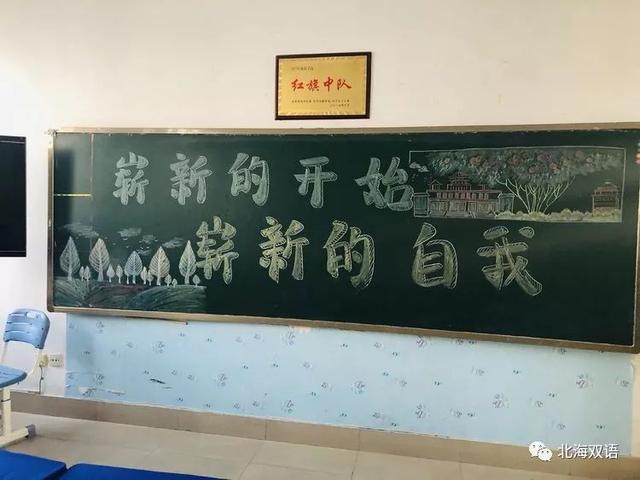 红旗中队
崭新的开始
崭新的自我
北海双语